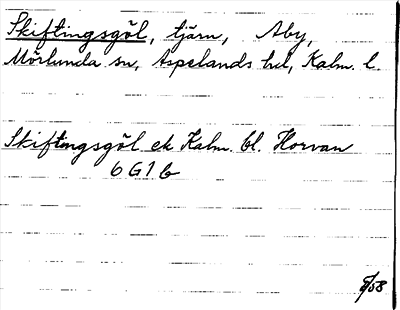 Skiftingsgöl, tjärn, Åby,
Mörlunda sn, Aspelands hd, Kalm. l.
Skiftingsgöl ek Kalm. bl. Horvan
6 G 1 b
/58